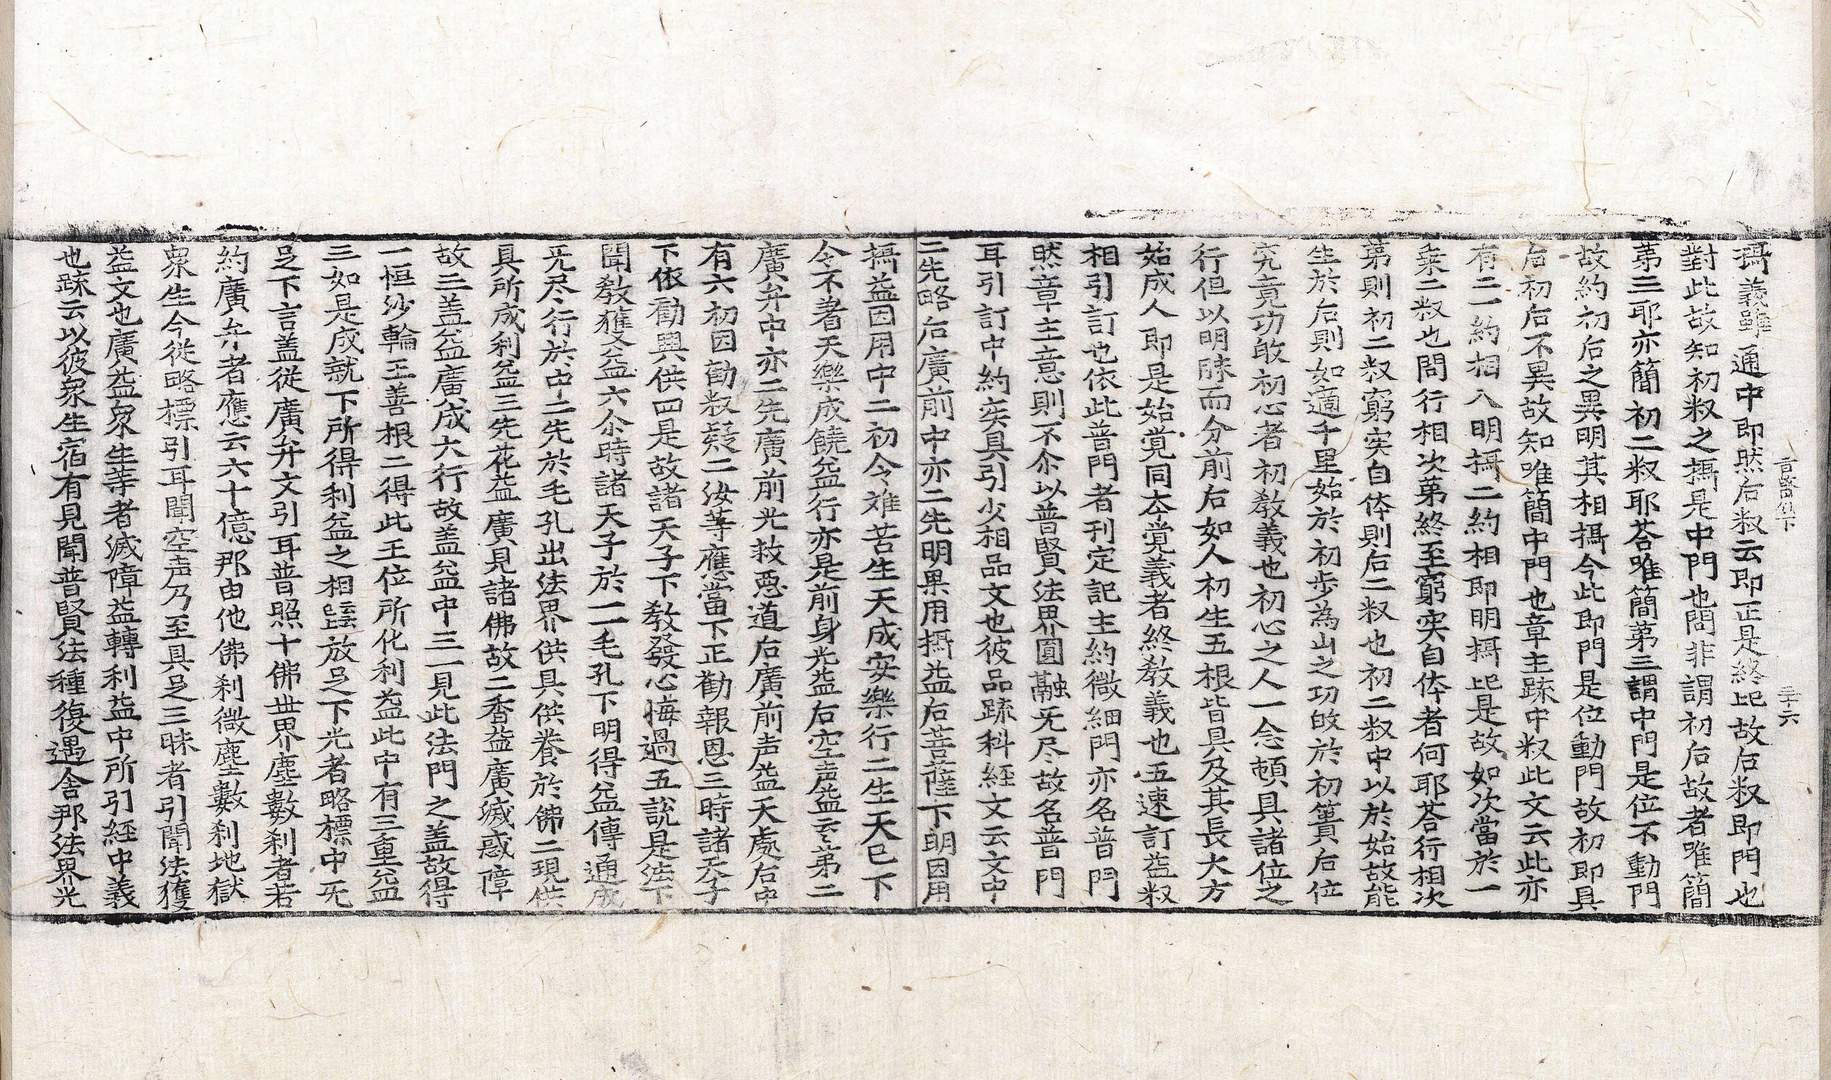 攝義雖通中即然后叙云即正是終比故后叙即門也
對此故知初叙之攝是中門也問非謂初后故者唯簡
苐三耶亦簡初二叙耶荅唯簡苐三謂中門是位不動門
故約初后之異明其相攝今此即門是位動門故初即具
后初后不異故知唯簡中門也章主䟽中叙此文云此亦
有二一約相入明攝二約相即明攝比是故如次當於一
乗二叙也問行相次苐終至窮实自体者何耶荅行相次
苐則初二叙窮实自体則后二叙也初二叙中以於始故能
生於后則如適千里始於初步為山之功於初簣后位
究竟功初心者初教義也初心之人一念頓具諸位之
行但以明昧而分前后如人初生五根皆具及其長大方
始成人即是始覚同夲覚義者終教義也五速訂益叙
相引訂也依此普門者刊定記主約微細門亦名普門
然章主意則不尒以普賢法界圓融旡尽故名普門
耳引訂中約实具引少相品文也彼品疏科経文云文中
二先略后廣前中亦二先明果用攝益后菩薩下明因用
攝益因用中二初令难苦生天成安樂行二生天已下
令不著天樂成饒益行亦是前身光益右空声益云苐二
廣弁中亦二先廣前光救惡道后廣前声益天處右中
有六初因勸叙疑二汝䓁應當下正勸報恩三時諸天子
下依勸興供四是故諸天子下教發心悔過五説是法下
聞教獲益六尒時諸天子於一毛孔下明得益傳通成
旡尽行於中二先於毛孔出法界供具供養於佛二現供
具所成利益三先花益廣見諸佛故二香益廣滅惑障
故三盖益廣成六行故盖益中三一見此法門之盖故得
一恒沙輪王善根二得此王位所化利益此中有三重益
三如是成就下所得利益之相謡放㠯下光者略標中旡
㠯下言盖從廣弁文引耳普照十佛世界塵數刹者若
約廣弁者應云六十億那由他佛刹微塵數刹地獄
衆生今從略標引耳聞空声乃至具㠯三昧者引聞法獲
益文也廣益衆生䓁者滅障益轉利益中所引経中義
也䟽云以彼衆生宿有見聞普賢法種復遇舎那法界光